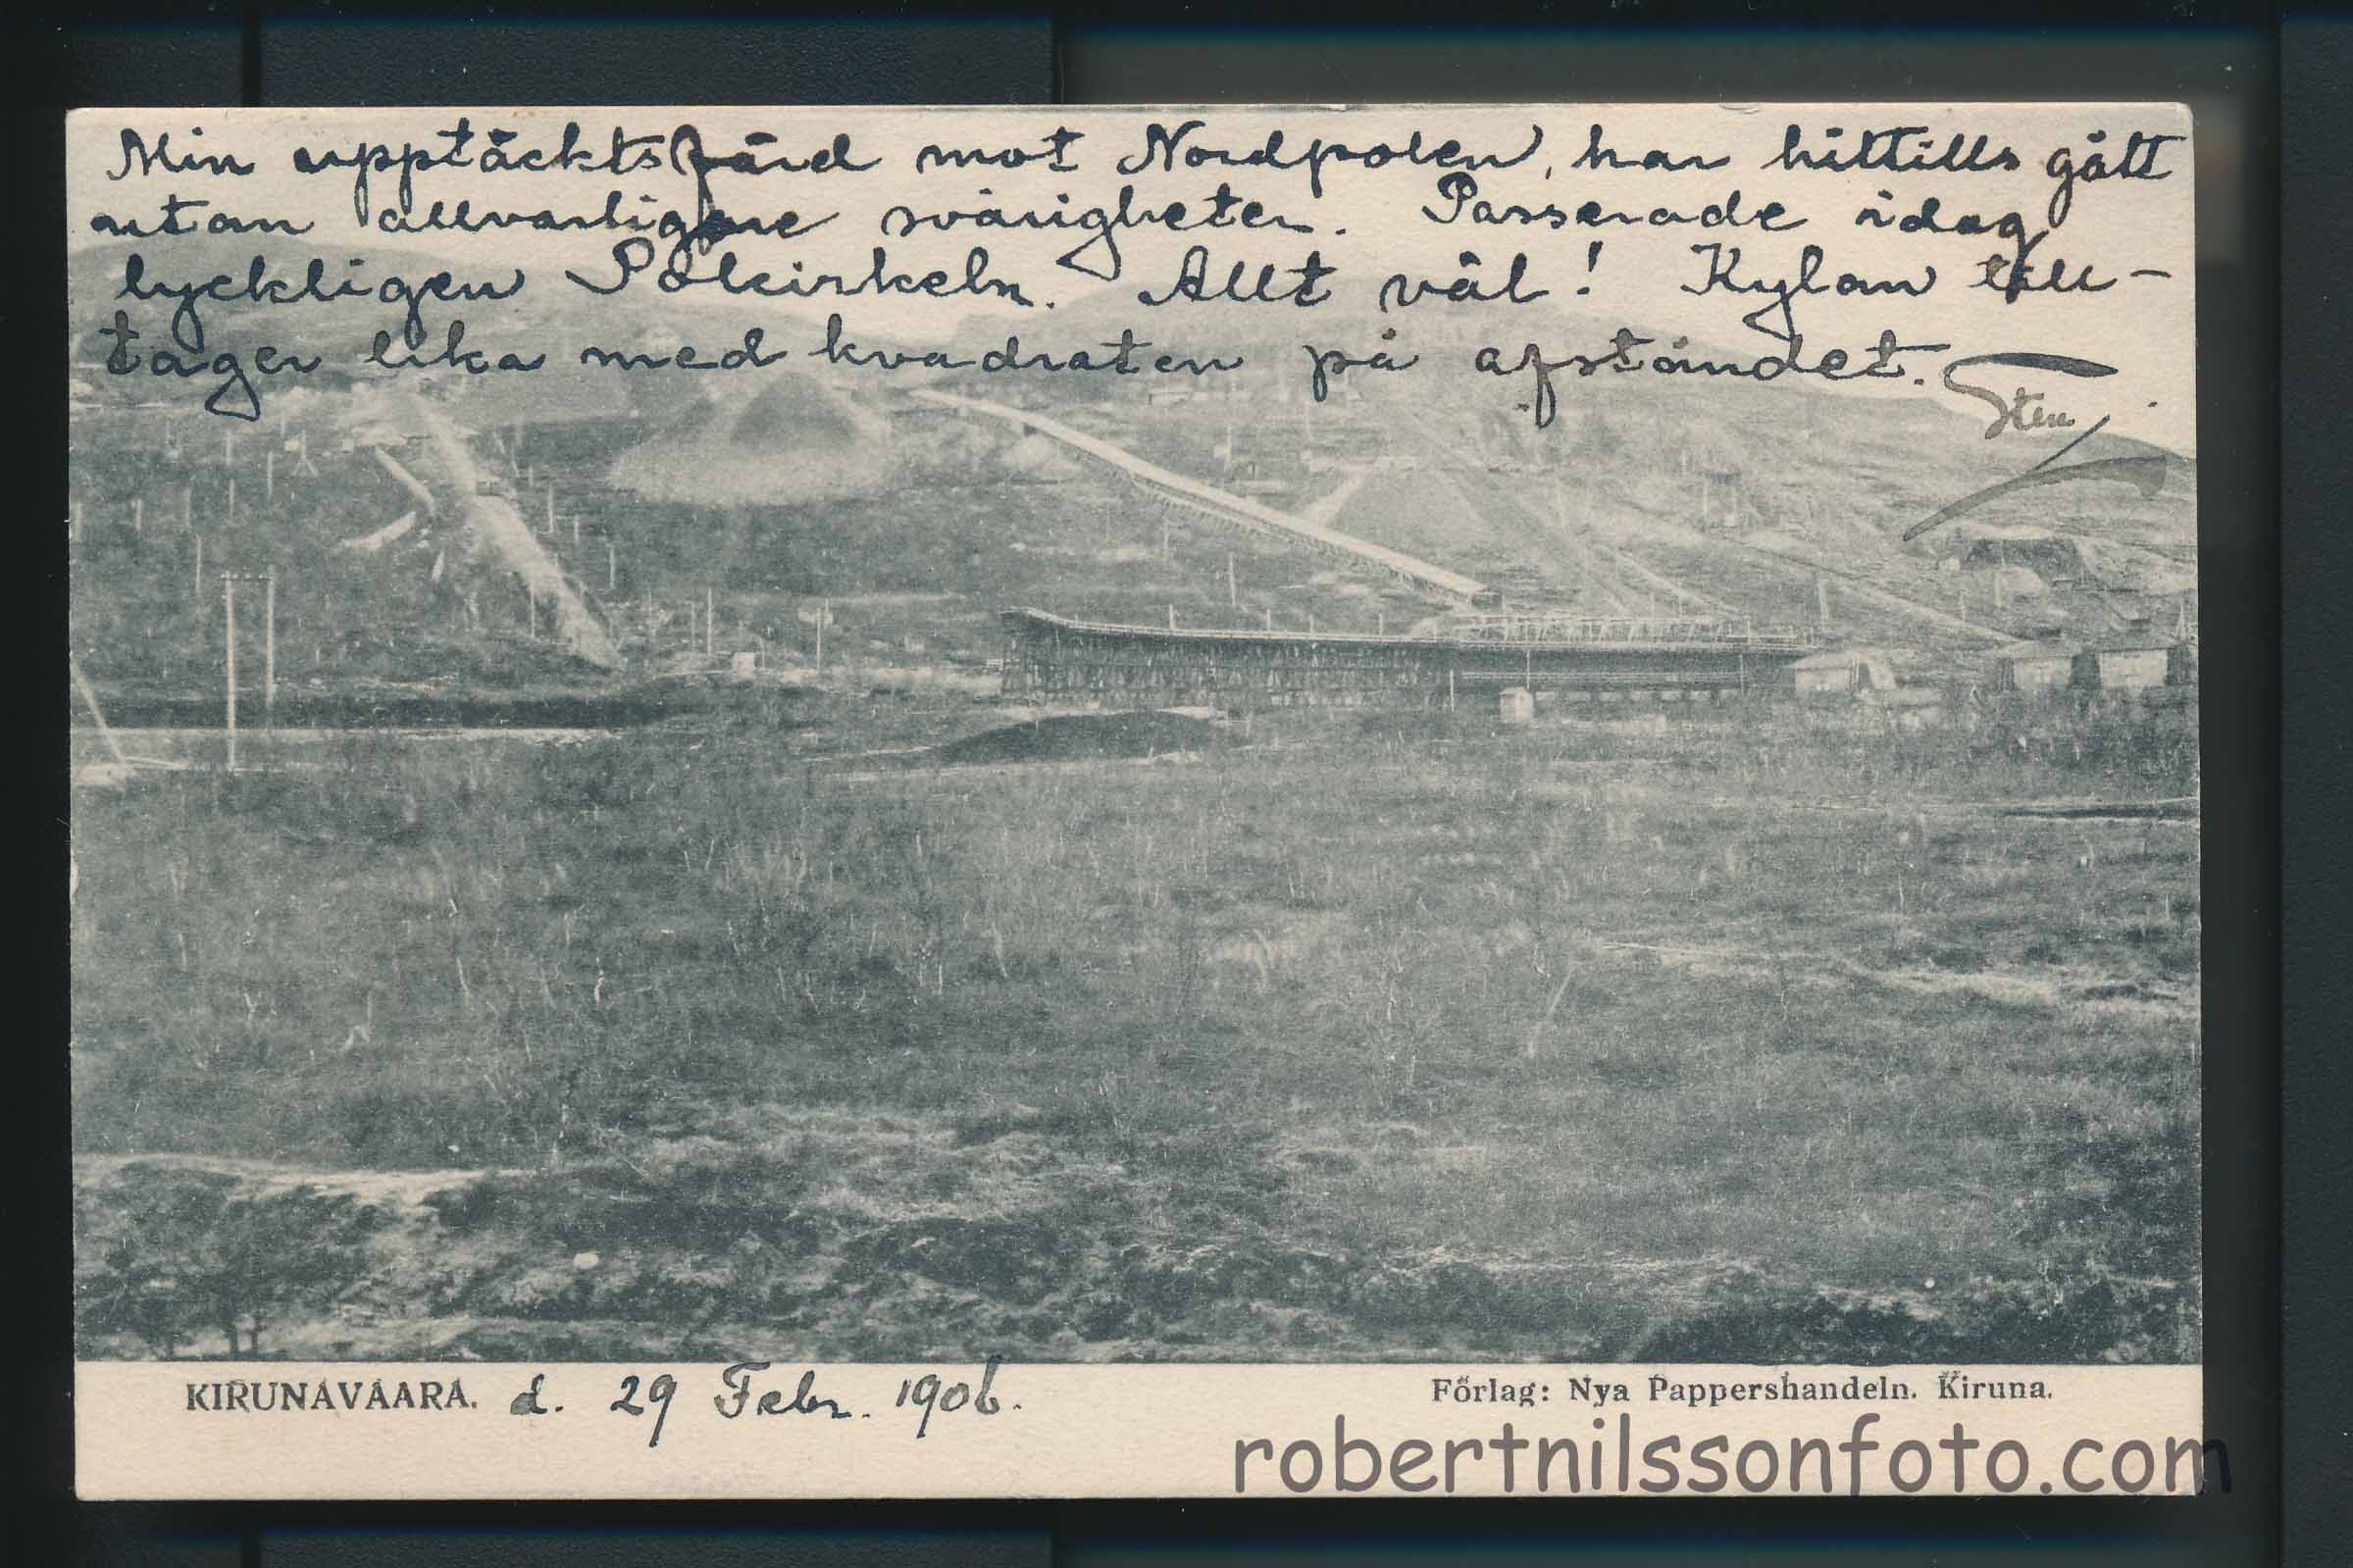 Min upptäcktsfärd mot Nordpolen, har hittills gått
utan allvarligare svårigheter. Passerade idag
lyckligen Polcirkeln. Allt väl! Kylan till-
tager lika med kvadraten på afståndet.
Sten
KIRUNAVAARA. d. 29 Febr. 1906.
Förlag: Nya Pappershandeln. Kiruna.
robertnilssonfoto.com